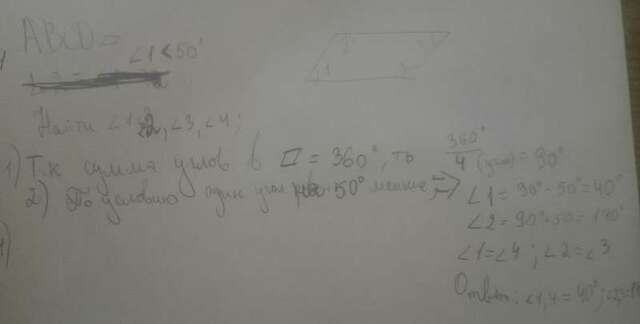 ABCD =
∠1 < 50°
Найти ∠1, 2, ∠3, ∠4;
1) Т.к сумма углов в ▱ = 360°, то 360°/4 (угла) = 90°
2) По условию один угол 50° меньше => ∠1 = 90° - 50° = 40°
∠2 = 90° + 50 = 140°
∠1 = ∠4 ; ∠2 = ∠3
Ответ: ∠1,4 = 40°;